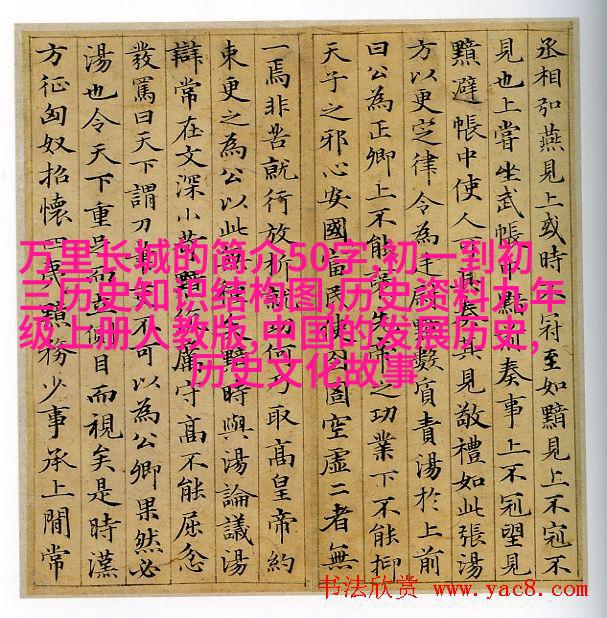 丞相弘燕見上或時不冠至如黯見上不冠不
見也上嘗坐武帳中黯前奏事上不冠望見
黯避帳中使人可其奏其見敬禮如此張湯
方以更定律令為廷尉黯數質責湯於上前
曰公為正卿上不能先帝之功業下不能抑
天子之邪心安國富民使囹圄空虛二者無
一焉非苦就行放析就功何乃取高皇帝約
束更之為公以此矣黯時與湯論議湯
辯常在文深小苛黯厲守高不能屈忿
發罵曰天下謂刀筆吏不可以為公卿果然必
湯也令天下重足而立側目而視矣是時漢
方征匈奴招懷四夷黯務少事承上間常
万里长城的简介50字,初一到初
三历史知识结构图,历史资料九年
级上册人教版,中国的发展历史,
历史文化故事
书法欣赏 www.yac8.com